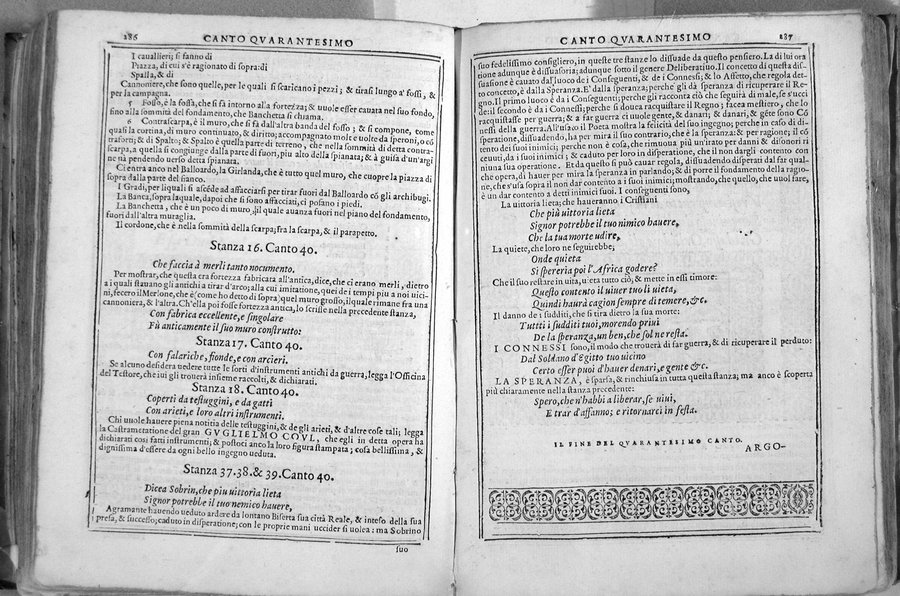 186
CANTO QVARANTESIMO
I cauallieri; si fanno di
Piazza, di cui s'è ragionato di sopra: di
Spalla, & di
Cannoniere, che sono quelle, per le quali si scaricano i pezzi; & tirasi lungo a' fossi, &
per la campagna.
5 Fosso, è la fossa, che si fa intorno alla fortezza; & uuole esser cauata nel suo fondo,
sino alla sommità del fondamento, che Banchetta si chiama.
6 Contrascarpa, è il muro, che si fa dall'altra banda del fosso; & si compone, come
quasi la cortina, di muro continuato, & diritto; accompagnato mole e uolte da speroni, o cō
traforti; & di Spalto; & Spalto è quella parte di terreno, che nella sommità di detta contra-
scarpa, a quella si congiunge dalla parte di fuori, piu alto della spianata; & à guisa d'un'argi
ne uà pendendo uerso detta spianata.
Ci entra anco nel Balloardo, la Girlanda, che è tutto quel muro, che cuopre la piazza di
sopra dalla parte del fianco.
I Gradi, per li quali si ascēde ad affacciarsi per tirar fuori dal Balloardo cō gli archibugi.
La Banca, sopra la quale, dapoi che si sono affacciati, ci posano i piedi.
La Banchetta, che è un poco di muro, il quale auanza fuori nel piano del fondamento,
fuori dall'altra muraglia.
Il cordone, che è nella sommità della scarpa; fra la scarpa, & il parapetto.
Stanza 16. Canto 40.
Che faccia à merli tanto nocumento.
Per mostrar, che questa era fortezza fabricata all'antica, dice, che ci erano merli, dietro
a i quali stauano gli antichi a tirar d'arco; alla cui imitatione, quei de i tempi piu a noi uici-
ni, fecero il Merlone, che è (come ho detto di sopra) quel muro grosso, il quale rimane fra una
cannoniera, & l'altra. Ch'ella poi fosse fortezza antica, lo scrisse nella precedente stanza,
Con fabrica eccellente, e singolare
Fù anticamente il suo muro construtto:
Stanza 17. Canto 40.
Con falariche, fionde, e con arcieri.
Se alcuno desidera uedere tutte le sorti d'instrumenti antichi da guerra, legga l'Officina
del Testore, che iui gli trouerà insieme raccolti, & dichiarati.
Stanza 18. Canto 40.
Coperti da testuggini, e da gatti
Con arieti, e loro altri instrumenti.
Chi uuole hauere piena notitia delle testuggini, & de gli arieti, & d'altre cose tali; legga
la Castrametatione del gran GVGLIELMO COVL, che egli in detta opera ha
dichiarati cosi fatti instrumenti; & postoci anco la loro figura stampata; cosa bellissima, &
dignissima d'essere da ogni bello ingegno ueduta.
Stanza 37.38.& 39. Canto 40.
Dicea Sobrin, che piu uittoria lieta
Signor potrebbe il tuo nemico hauere,
Agramante hauendo ueduto ardere da lontano Biserta sua città Reale, & inteso della sua
presa, & successo; caduto in disperatione; con le proprie mani uccider si uolea: ma Sobrino
suo
CANTO QVARANTESIMO
187
suo fedelissimo consigliero, in queste tre stanze lo dissuade da questo pensiero. La di lui ora
tione adunque è dissuasoria; adunque sotto il genere Deliberatiuo. Il concetto di questa dis-
suasione è cauato dal luoco de i Conseguenti, & de i Connessi; & lo Assetto, che regola det-
to concetto, è dalla Speranza. E' dalla speranza; perche gli dà speranza di ricuperare il Re-
gno. Il primo luoco è da i Conseguenti; perche gli racconta ciò che seguirà di male, se s'ucci
de: il secondo è da i Connessi; perche si douea racquistare il Regno; facea mestiero, che lo
racquistasse per guerra; & a far guerra ci uuole gente, & danari; & danari, & gēte sono Cō
nessi della guerra. All'usāzo il Poeta mostra la felicità del suo ingegno; perche in caso di di-
speratione, dissuadendo, ha per mira il suo contrario, che è la speranza: & per ragione; il cō
tento de i suoi inimici; perche non è cosa, che rimuoua più un'irato per danni & disonori ri
ceuuti, da i suoi inimici; & caduto per loro in disperatione, che il non dargli contento con
niuna sua operatione. Et da questo si può cauar regola, dissuadendo disperati dal far qual-
che opera, di hauer per mira la speranza in parlando; & di porre il fondamento della ragio-
ne, che s'usa sopra il non dar contento a i suoi inimici; mostrando, che quello, che uuol fare,
è un dar contento a detti inimici suoi. I conseguenti sono,
La uittoria lieta; che haueranno i Cristiani
Che più uittoria lieta
Signor potrebbe il tuo nimico hauere,
Che la tua morte udire,
La quiete, che loro ne seguirebbe;
Onde quieta
Si spereria poi l'Africa godere?
Che il suo restare in uita, uieta tutto ciò, & mette in essi timore:
Questo contento il uiuer tuo li uieta,
Quindi haurà cagion sempre di temere, &c.
Il danno de i sudditi, che si tira dietro la sua morte:
Tuttti i sudditi tuoi, morendo priui
De la speranza, un ben, che sol ne resta.
I CONNESSI sono, il modo che trouerà di far guerra, & di ricuperare il perduto:
Dal Soldano d'Egitto tuo uicino
Certo esser puoi d'hauer denari, e gente &c.
LA SPERANZA, è sparsa, & rinchiusa in tutta questa stanza; ma anco è scoperta
più chiaramente nella stanza precedente:
Spero, che n'habbi a liberar, se uiui,
E trar d'affanno; e ritornarci in festa.
IL FINE DEL QVARANTESIMO CANTO.
ARGO-